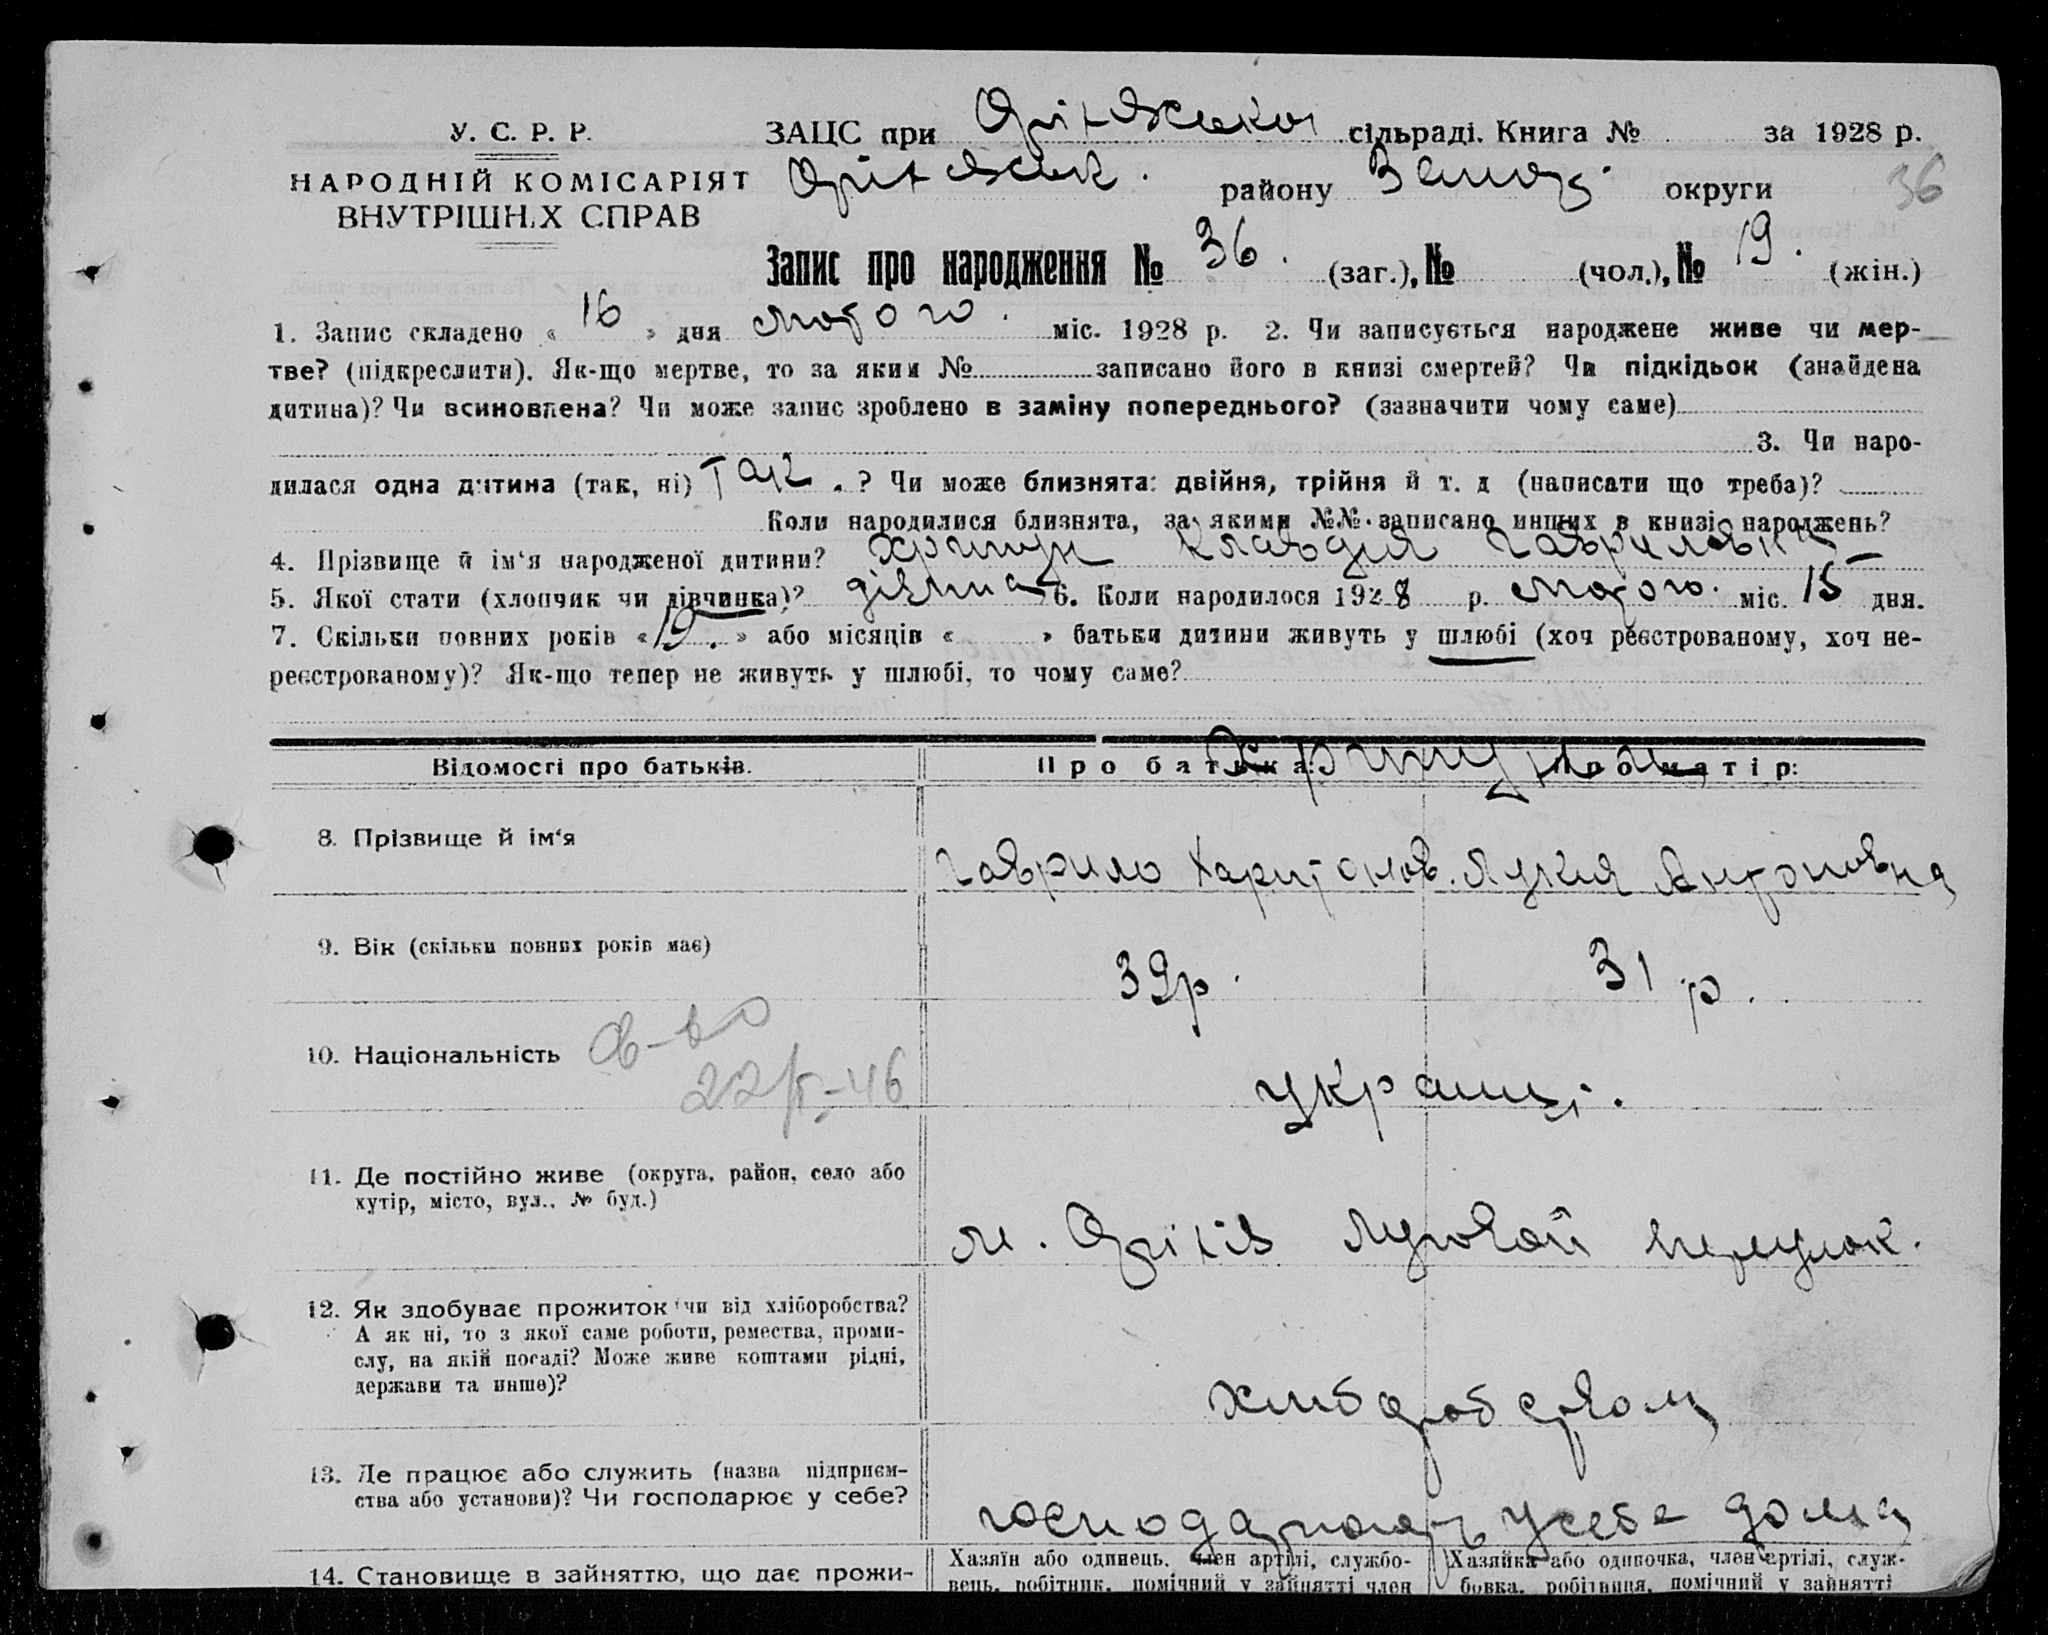 У. С. Р. Р.
НАРОДНІЙ КОМІСАРІЯТ
ВНУТРІШНІХ СПРАВ
ЗАЦС при Оріхівській сільраді. Книга № за 1928 р.
Оріхівськ. району Запор. округи
36
Запис про народження № 36. (заг.), № (чол.), № 19. (жін.)
1. Запис складено « 16 » дня лютого міс. 1928 р. 2. Чи записується народжене живе чи мер-
тве? (підкреслити). Як-що мертве, то за яким № записано його в книзі смертей? Чи підкідьок (знайдена
дитина)? Чи всиновлена? Чи може запис зроблено в заміну попереднього? (зазначити чому саме)
3. Чи наро-
дилася одна дитина (так, ні) так. ? Чи може близнята: двійня, трійня й т. д (написати що треба)?
Коли народилися близнята, за якими №№ записано инших в книзі народжень?
4. Прізвище й ім‘я народженої дитини? Клавдия Гавриловна
5. Якої стати (хлопчик чи дівчинка)? 6. Коли народилося 1928 р. лютого. міс. 15 дня.
7. Скільки повних років « 19. » або місяців « » батьки дитини живуть у шлюбі (хоч реєстрованому, хоч не-
реєстрованому)? Як-що тепер не живуть у шлюбі, то чому саме?
Відомості про батьків.
Про батька:
Про матір:
8. Прізвище й ім‘я
Гаврило Харитонов. Лукия Антоновна
9. Вік (скільки повних років має)
39р.
31 р.
10. Національність
украинці.
11. Де постійно живе (округа, район, село або
хутір, місто, вул., № буд.)
м. Оріхів Луговой переулок.
12. Як здобуває прожиток чи від хліборобства?
А як ні, то з якої саме роботи, ремества, проми-
слу, на якій посаді? Може живе коштами рідні,
держави та инше)?
хлиборобством
13. Де працює або служить (назва підприєм-
ства або установи)? Чи господарює у себе?
господарюють у себе дома
14. Становище в зайняттю, що дає прожи-
Хазяїн або одинець, член артілі, службо-
вець, робітник, помічний у зайнятті член
Хазяйка або одиночка, член артілі, служ-
бовка, робітниця, помічний у зайнятті